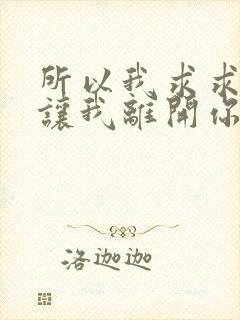 所以我求求
讓我離開你
洛迦迦